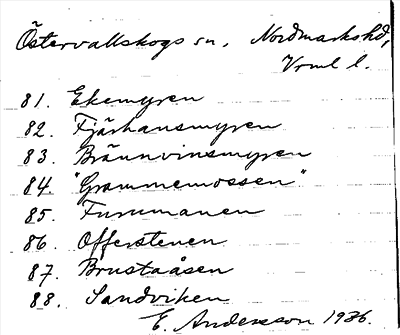 Östervallskogs sn. Nordmarks hd,
Vrml l.
81. Ekemyren
82. Fjärhansmyren
83. Brännvinsmyren
84. "Grammemossen".
85. Furumanen
86. Offerstenen
87. Brustaåsen
88. Sandviken
E. Andersson 1936.